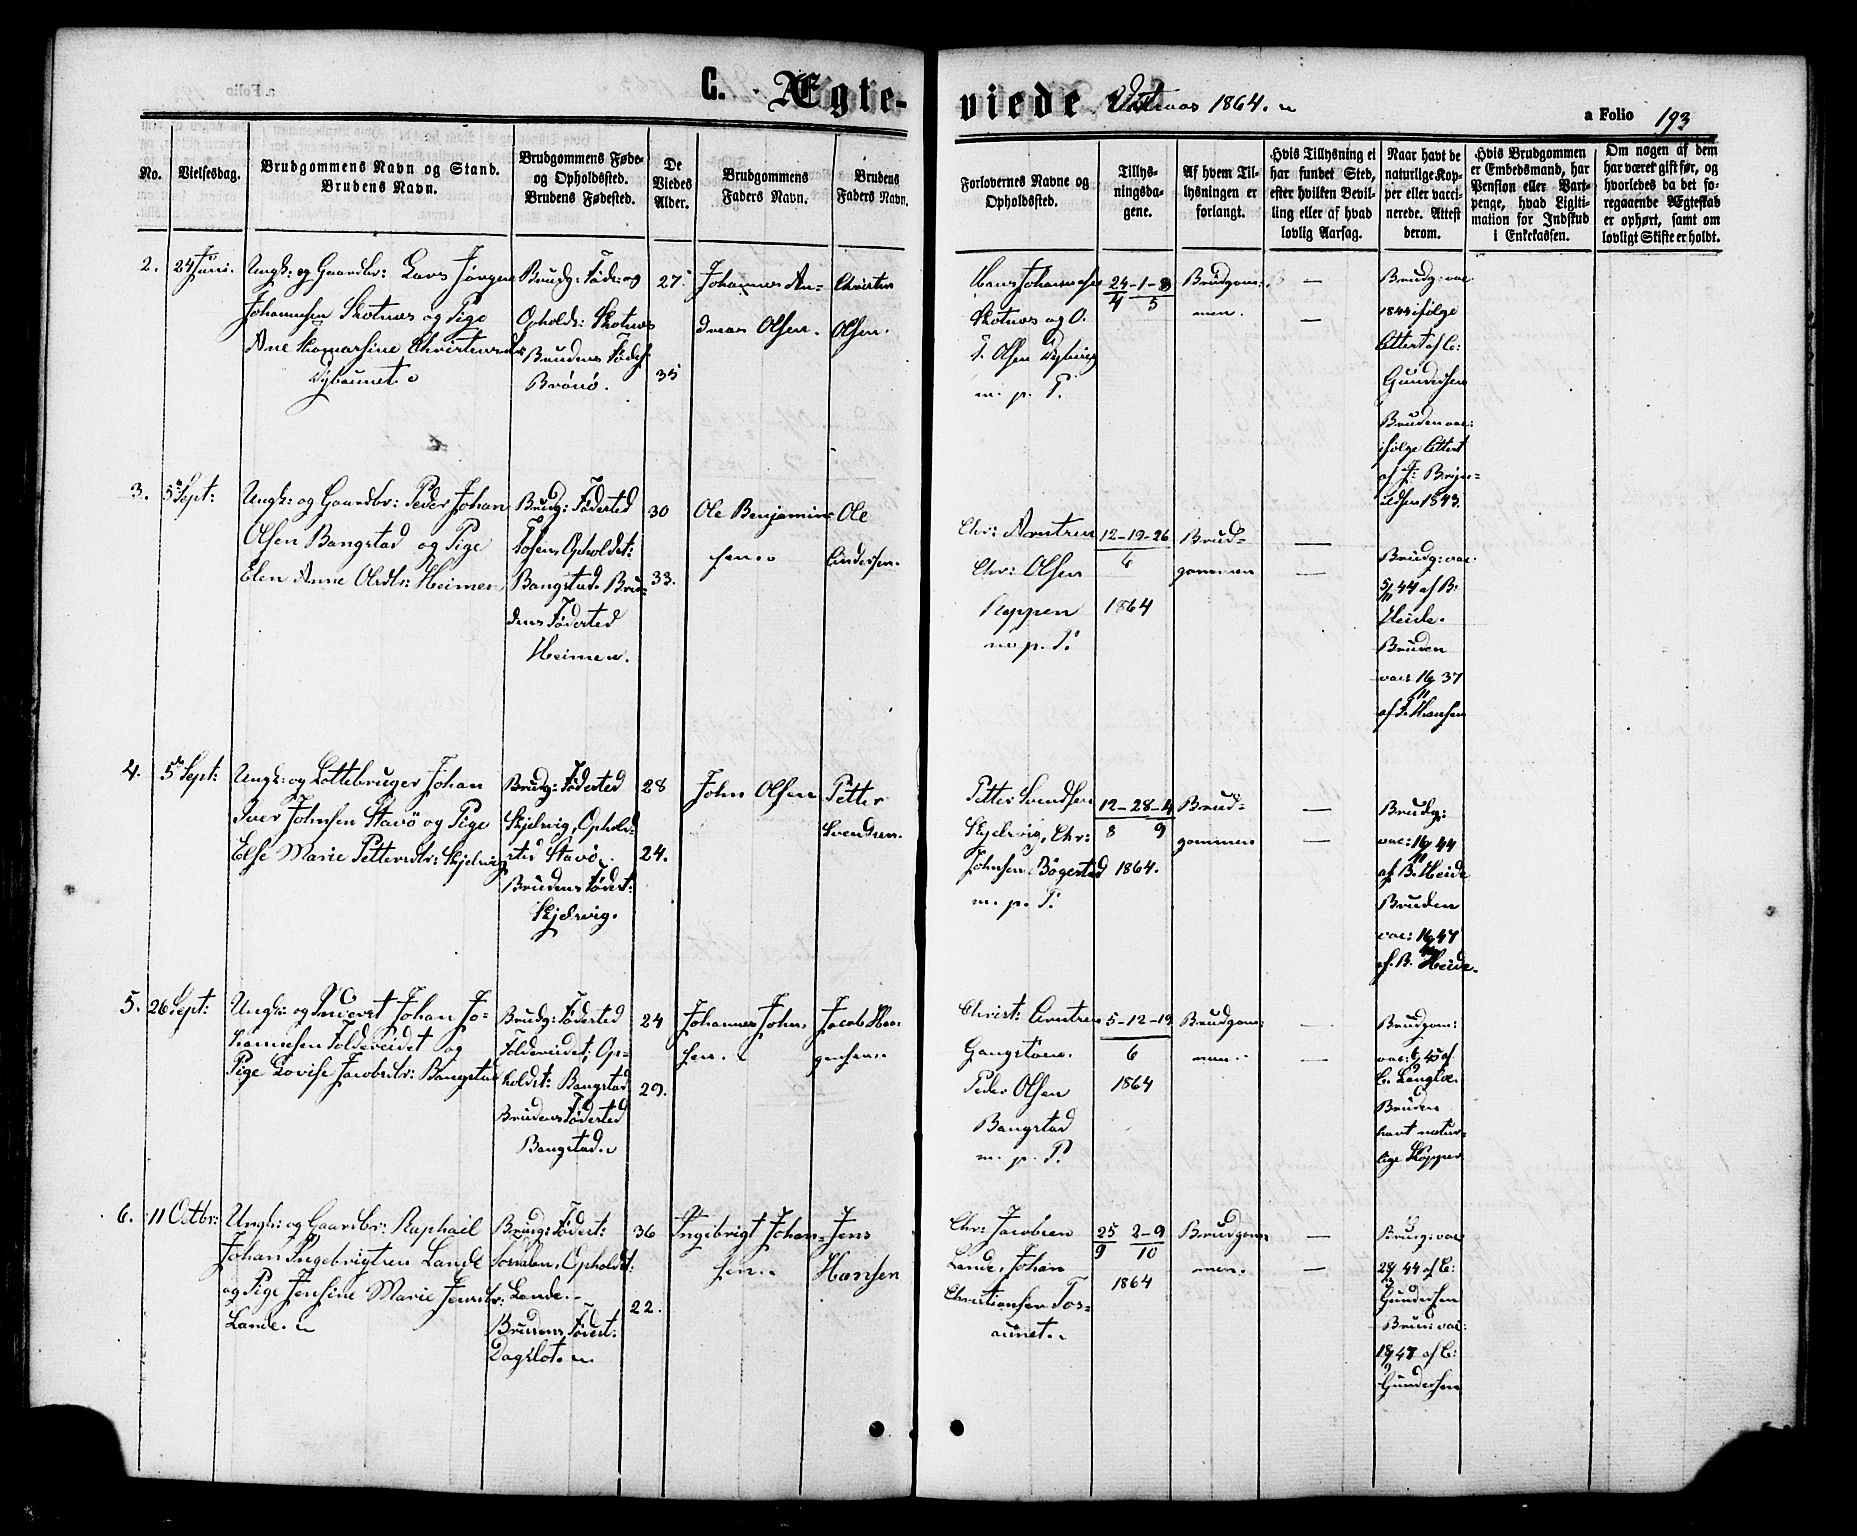 C. Ægteviede
1864.
a Folio 193
No.
Vielsesdag.
Brudgommens Navn og Stand.
Brudens Navn.
Brudgommens Føde-
og Opholdssted.
Brudens Fødested.
De
Viedes
Alder.
Brudgommens
Faders Navn.
Brudens
Faders Navn.
Forlovernes Navne og
Opholdssted.
Tillys-
ningsda-
gene.
Af hvem Til-
lysningen er
forlangt.
Hvis Tillysning ei
har fundet Sted,
efter hvilken Bevil-
ling eller af hvad
lovlig Aarsag.
Naar havt de
naturlige Kop-
per eller vacci-
nerede. Attest
derom.
Hvis Brudgommen
er Embedsmand, har
Pension eller Vart-
penge, hvad Ligiti-
mation for Indskud
i Enkekassen.
Om nogen af dem
har været gift før, og
hvorledes da det fo-
regaaende Ægteskab
er ophørt, samt om
lovligt Skifte er holdt.
2.
24 Juni.
Ungk: og Gaardbr: Lars Jørgen
Johannesen Skotnes og Pige
Ane Thomasine Christensdtr
Brudg: Føde: og
Opholds: Skotnes
Brudens Fødes
Brönö.
27
35
Johannes An-
dreas Olsen.
Christen
Olsen.
Hans Johannesen
Skotnes og O.
T. Olsen
m. p. P.
24-1-8
4 5
Brudgom-
men.
—
—
Brudg: vac
1844 ifølge
Attest af C:
Gundersen
Bruden vac:
ifølge Attest
1843.
3.
5 Sept:
Ungk: og Gaardbr: Peder Johan
Olsen Bangstad og Pige
Elen Anne Olsdtr: Heimen
Brudg: Födested
Opholdst:
Bangstad. Bru-
dens Födested
Heimen.
30
33.
Ole Benjamin-
sen.
Ole
Andersen.
Chr: Arntsen
Chr: Olsen
Reppen
m. p. P.
12-19-26
6
1864
Brud-
gommen
—
—
Brudg: vac
5/11 44 af B:
Heide.
Bruden
vac: 16/11 37
af J. Hansen
4.
5 Sept:
Ungk: og Lottebruger Johan
Iver Johnsen Stavö og Pige
Else Marie Pettersdtr: Skjelvig
Brudg: Födested
Skjelvig, Ophold-
sted Stavö.
Brudens Födest:
Skjelvig.
28
24.
John Olsen
Petter
Svendsen.
Petter Svendsen
Skjelvig, Chr:
Johnsen Bögestad
m. p. P.
12-28-4
8 9
1864.
Brud-
gommen
—
—
Brudg:
vac: 16/11 44
af B. Heide
Bruden
vac: 16/ 47
af. B. Heide.
5.
26 Sept:
Ungk: og Inderst Johan Jo-
hannesen Foldereidet og
Pige Lovise Jacobsdtr: Bangstad
Brudg: Födested
Foldereidet, Op-
holdst: Bangstad
Brudens Födested
Bangstad.
24
29.
Johannes John-
sen.
Jacob Haa-
gensen.
Christ: Arntsen
Gangstöen.
Peder Olsen
Bangstad
m. p. P.
5-12-19
6
1864
Brudgom-
men.
—
—
Brudgom:
vac: 45 af
C. Langlo.
Bruden
havt natur-
lige Kopper
6.
11 Octbr:
Ungk: og Gaardbr: Raphael
Johan Ingebrigtsen Lande
og Pige Jensine Marie Jensdtr:
Lande.
Brudg: Födest:
Opholdst:
Lande.
Brudens Födest:
Dagslot.
36
22.
Ingebrigt Johan-
sen.
Jens
Hansen
Chr: Jacobsen
Lande, Johan
Christiansen Tos-
aunet.
25 2-9
9 10
1864
Brudgom-
men.
—
—
Brudg: vac
44 af C:
Gundersen
Brud: vac:
18/9 47 af C:
Gundersen